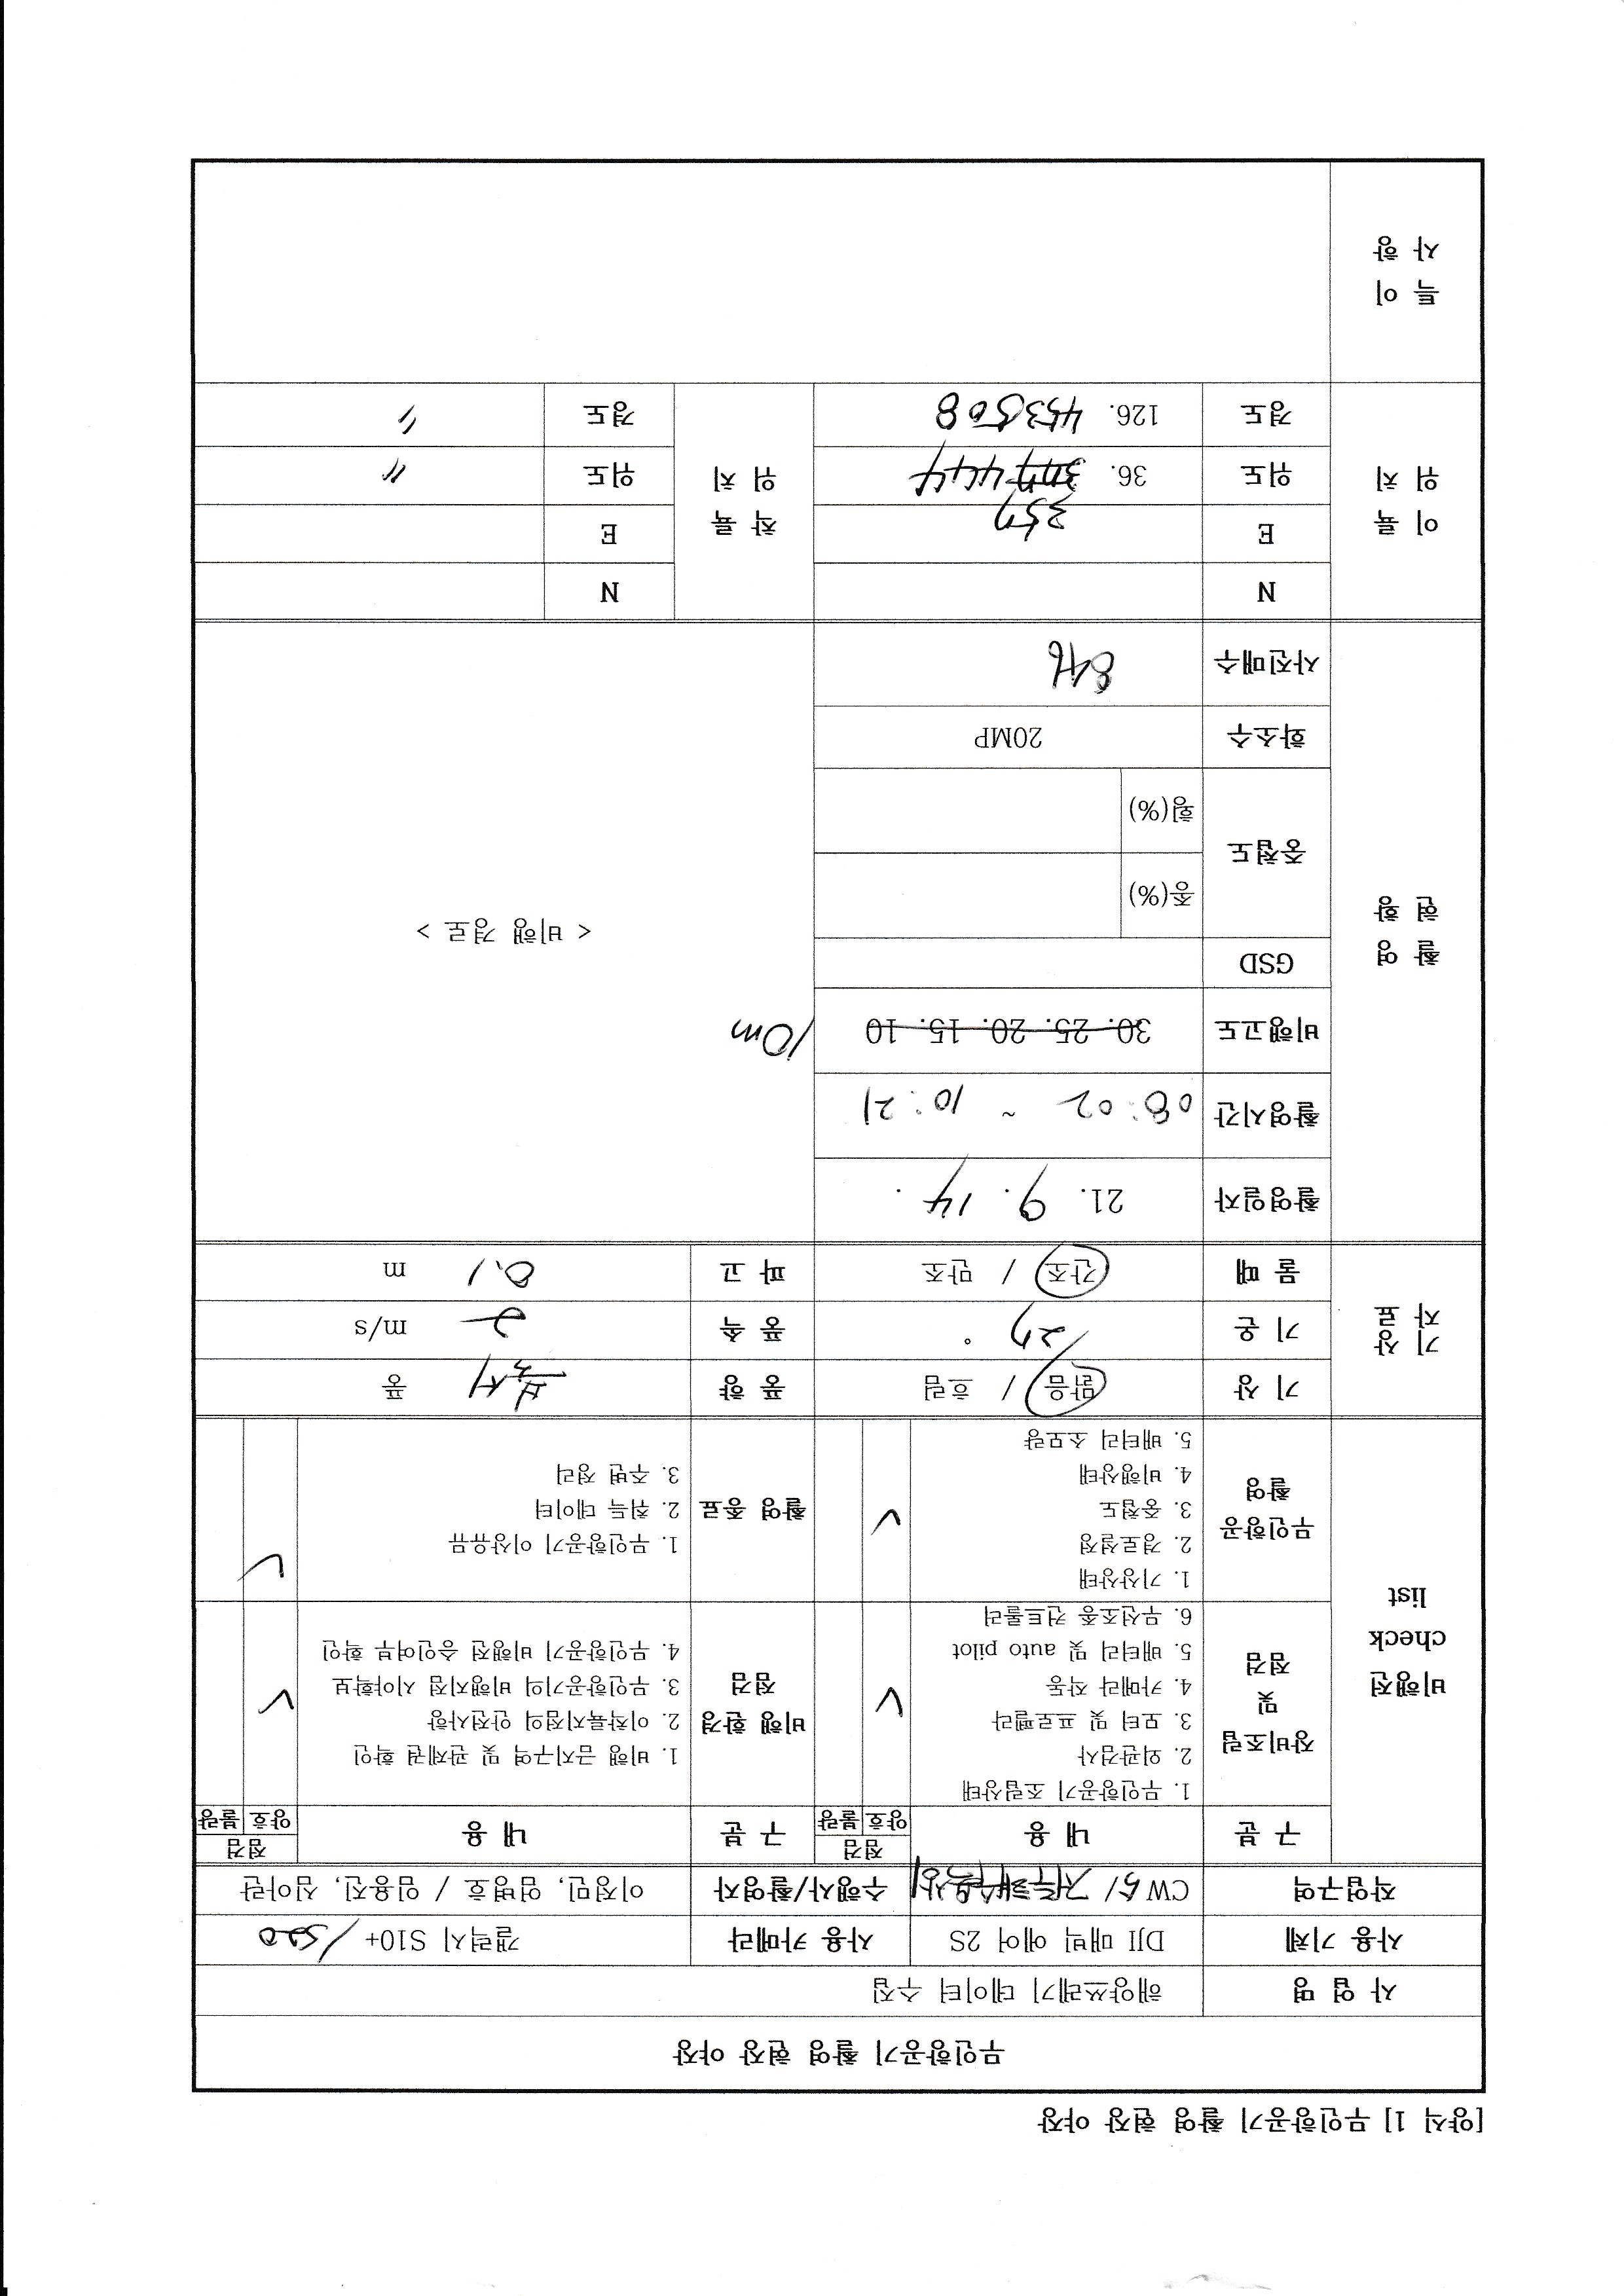 [양식 1] 무인항공기 촬영 현장 야장
무인항공기 촬영 현장 야장
사 업 명 해양쓰레기 데이터 수집
사용 기체 DJI 매빅 에어 2S 사용 카메라 갤럭시 S10+ /S20
작업구역 CW 5/ 저두해수욕장 수행사/촬영자 이정민, 엄병호 / 임용진, 심아란
비행전
check
list
구 분 내 용 점검 양호 불량 구 분 내 용 점검 양호 불량
장비조립
및
점검
1. 무인항공기 조립상태
2. 외관검사
3. 모터 및 프로펠라
4. 카메라 작동
5. 배터리 및 auto pilot
6. 무선조종 컨트롤러
✓
비행 환경
점검
1. 비행 금지구역 및 관제권 확인
2. 이착륙지점의 안전사항
3. 무인항공기의 비행지점 시야확보
4. 무인항공기 비행전 승인여부 확인
✓
무인항공
촬영
1. 기상상태
2. 경로설정
3. 중첩도
4. 비행상태
5. 배터리 소모량
✓
촬영 종료
1. 무인항공기 이상유뮤
2. 취득 데이터
3. 주변 정리
✓
기 상
자 료
기 상 맑음 / 흐림 풍 향 북서 풍
기 온 27 ° 풍 속 2 m/s
물 때 간조 / 만조 파 고 0.1 m
촬 영
현 황
촬영일자 21. 9. 14.
촬영시간 08:02 ~ 10:21
비행고도 30. 25. 20. 15. 10 10m
GSD
중첩도
종(%)
횡(%)
화소수 20MP
사진매수 846
< 비행 경로 >
이 륙
위 치
N
E
357
위도 36. 377 444
경도 126. 453508
착 륙
위 치
N
E
위도 〃
경도 〃
특 이
사 항